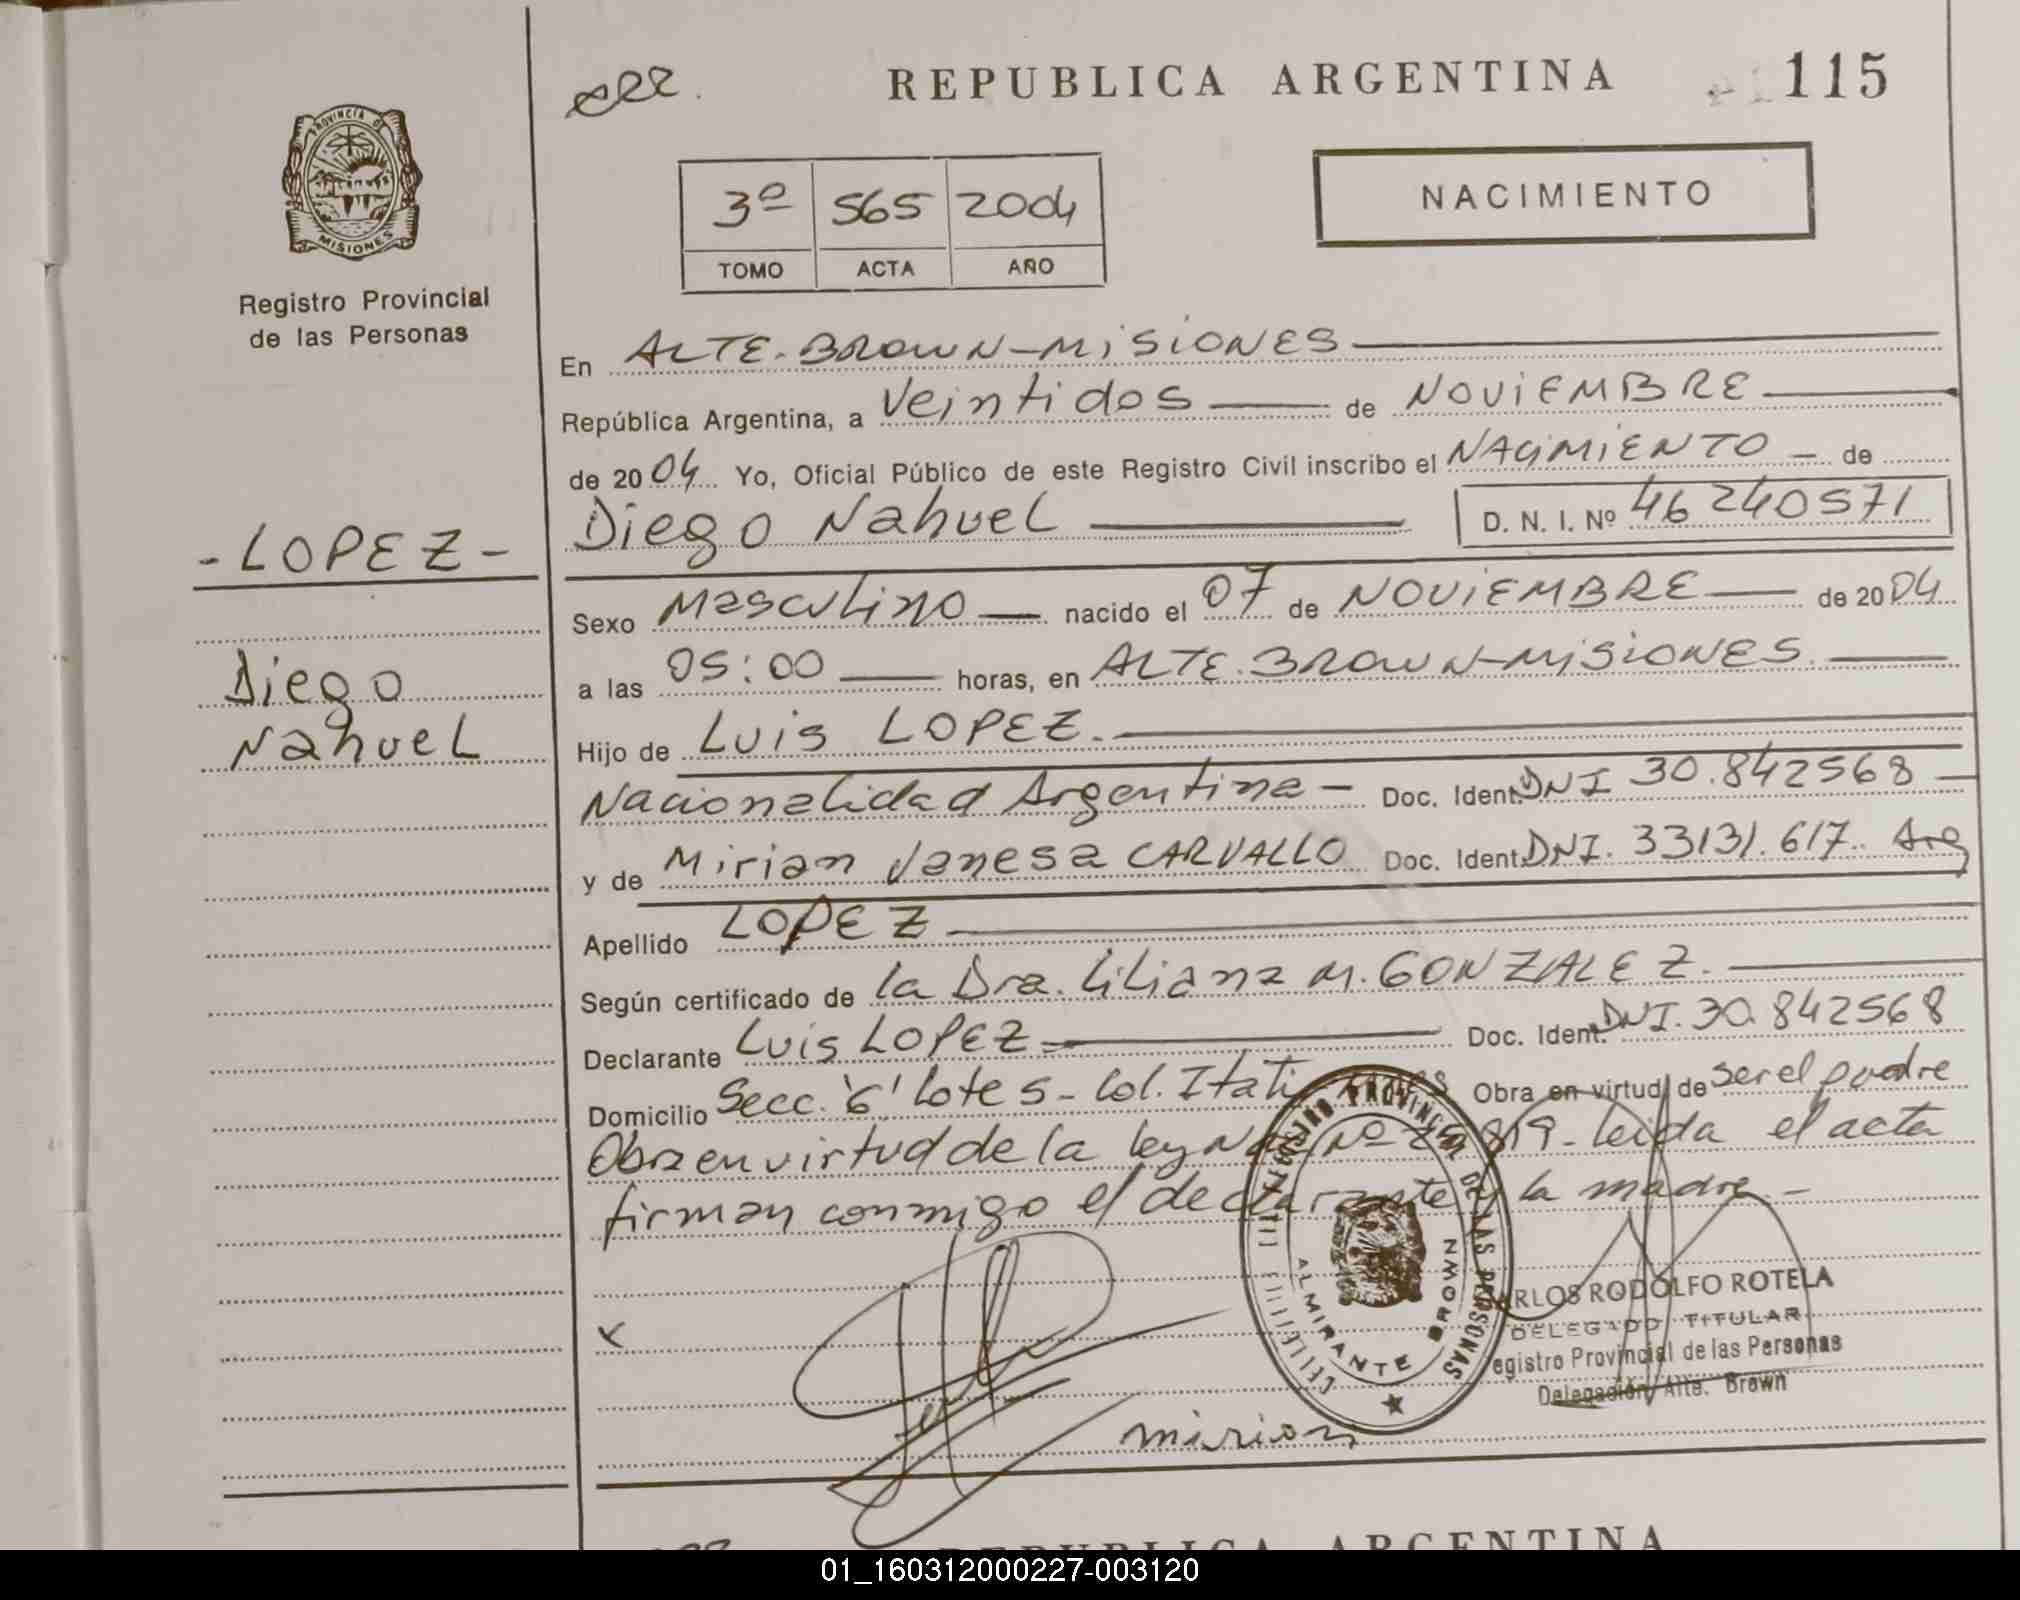 REPUBLICA ARGENTINA 115
PROVINCIA DE MISIONES
Registro Provincial
de las Personas
3º 565 2004
TOMO ACTA AÑO
NACIMIENTO
En ALTE. BROWN-MISIONES
República Argentina, a Veintidos de NOVIEMBRE
de 2004 Yo, Oficial Público de este Registro Civil inscribo el NACIMIENTO - de
Diego Nahuel D. N. I. Nº 46240571
-LOPEZ-
Diego
Nahuel
Sexo Masculino nacido el 07 de NOVIEMBRE de 2004
a las 05:00 horas, en ALTE. BROWN-MISIONES.
Hijo de Luis LOPEZ.
Nacionalidad Argentina - Doc. Ident. DNI 30.842568
y de Mirian Vanesa CARVALLO Doc. Ident. DNI. 33131.617. Arg
Apellido LOPEZ
Según certificado de la Dra. Liliana M. GONZALEZ.
Declarante Luis LOPEZ Doc. Ident. DNI. 30.842568
Domicilio Secc. '6' Lote 5 - Col. Itati Obra en virtud de ser el padre
Obra en virtud de la ley Nº leida el acta
firman conmigo el declarante y la madre.-
x
REGISTRO PROVINCIAL DE LAS PERSONAS
ALMIRANTE BROWN
ARLOS RODOLFO ROTELA
DELEGADO TITULAR
egistro Provincial de las Personas
Delegación Alte. Brown
mirian
REPUBLICA ARGENTINA
01_160312000227-003120